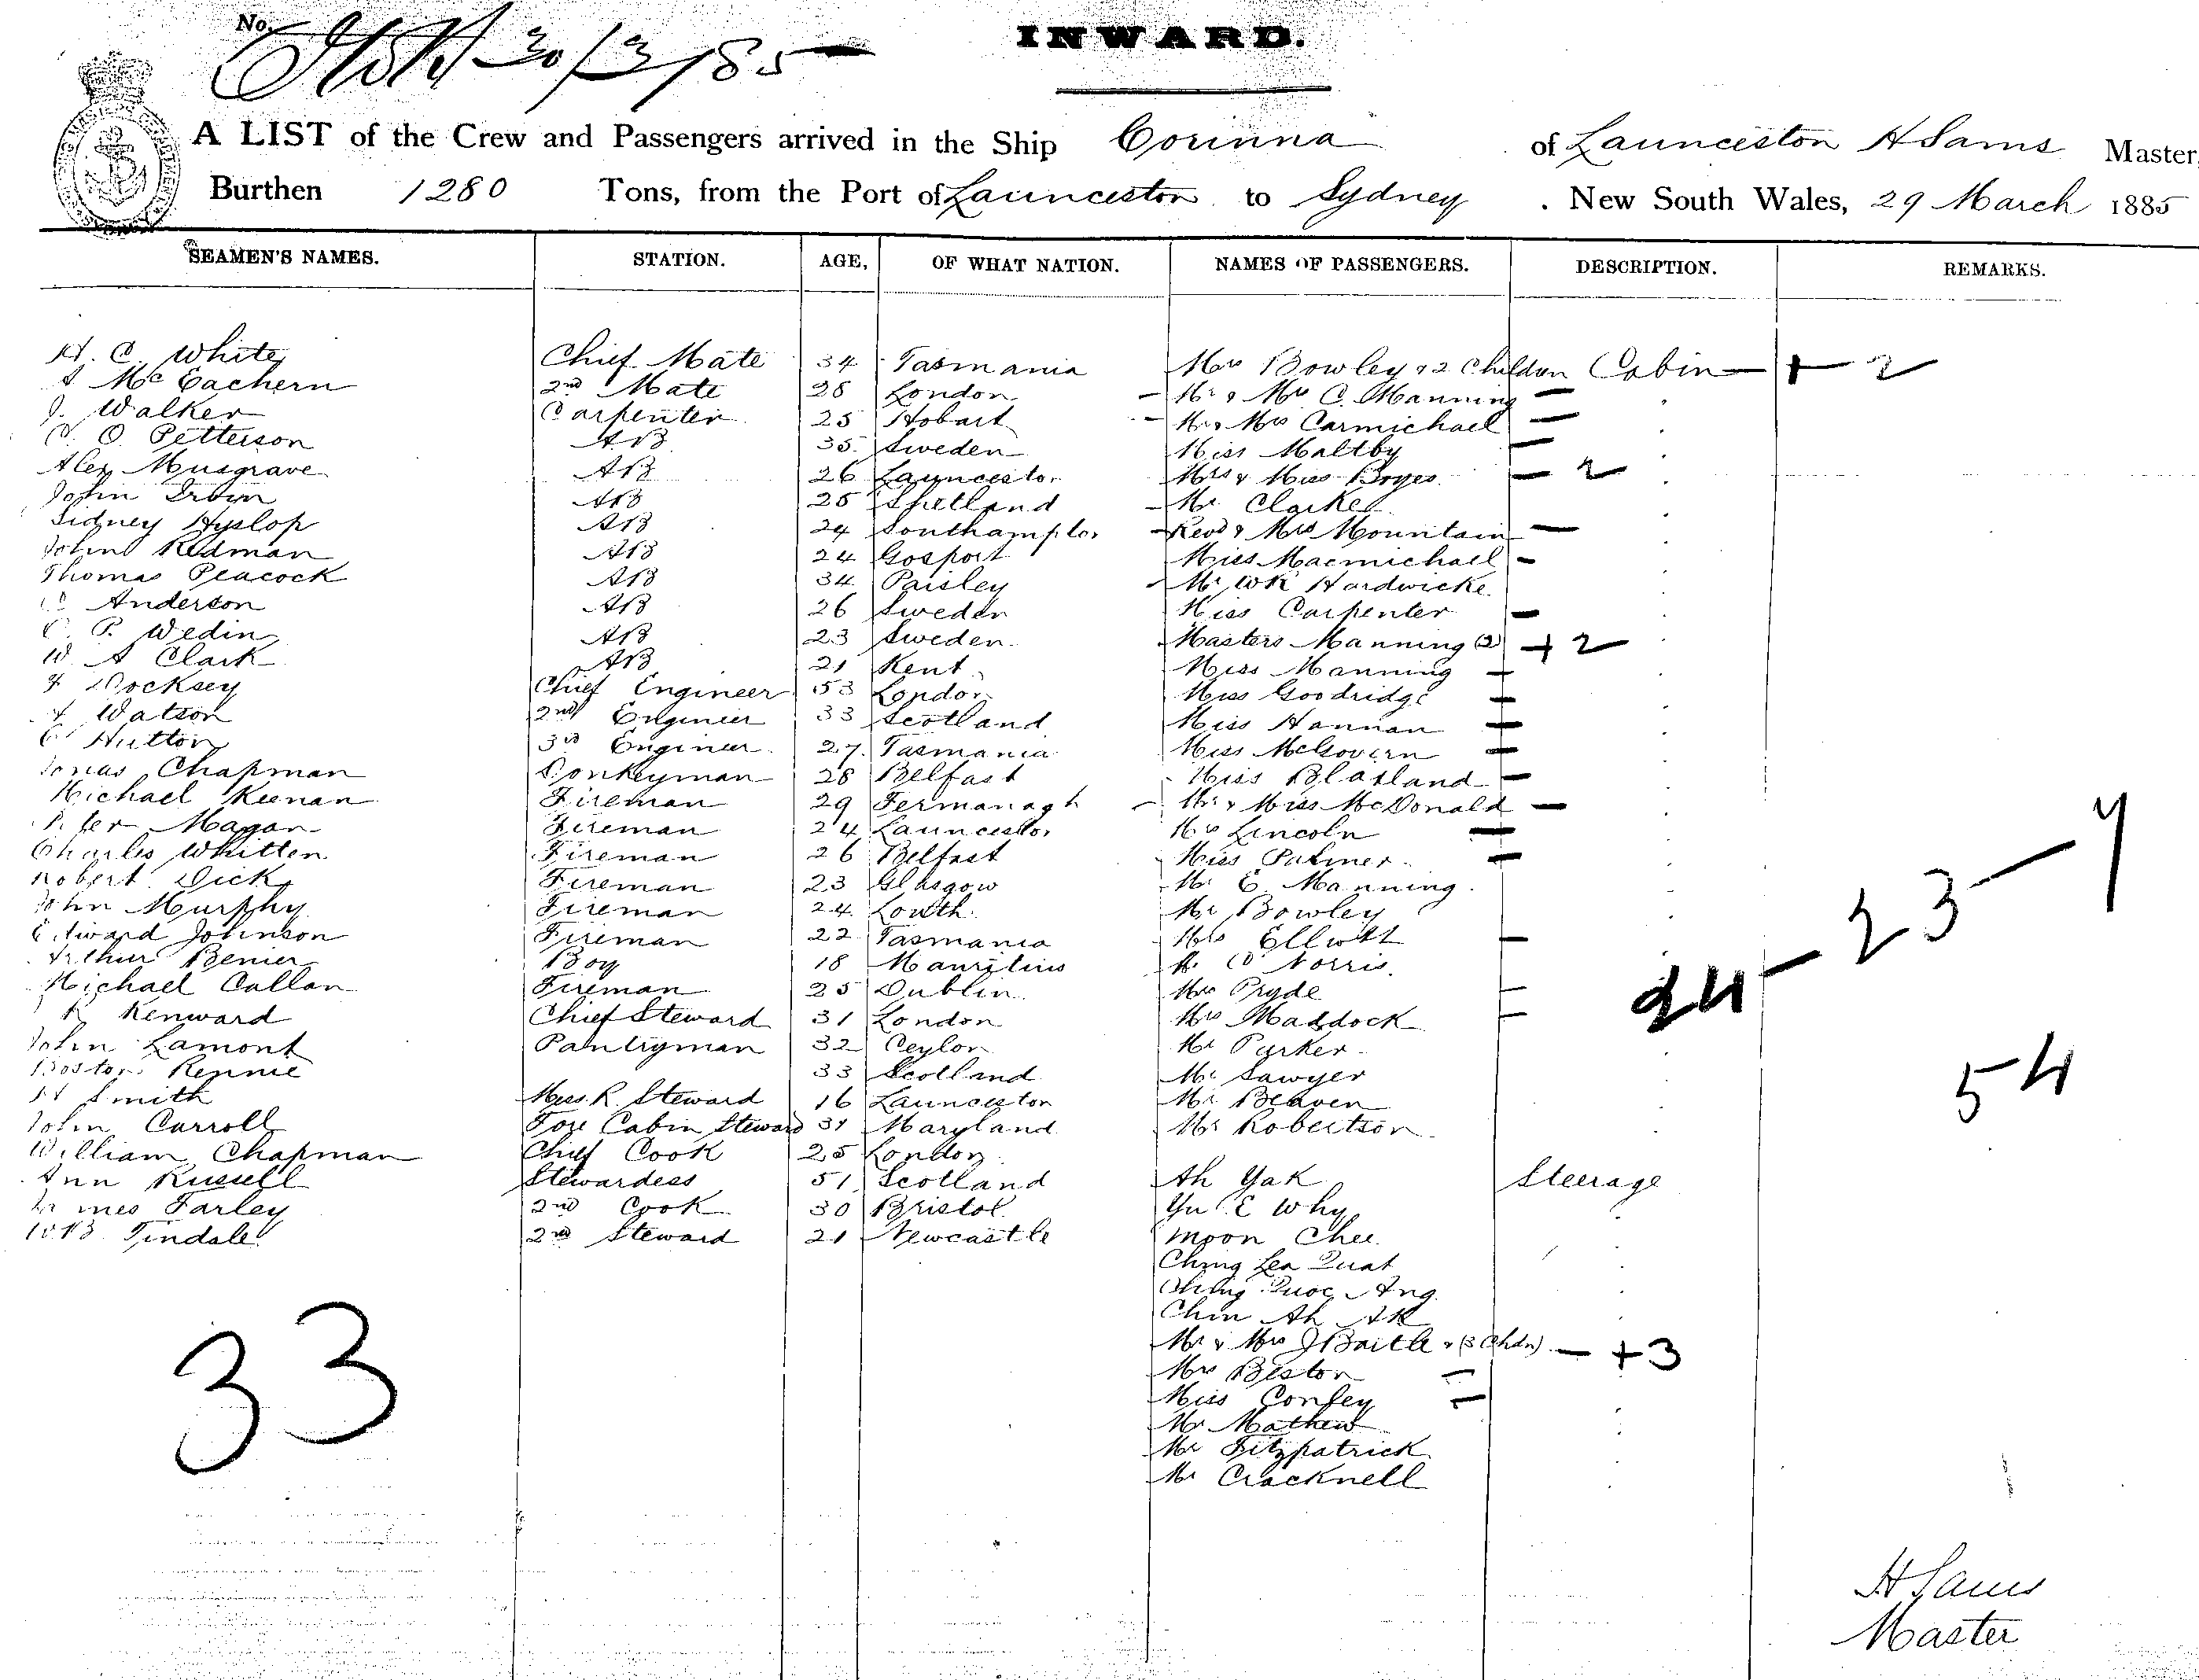 No.
30/3/85
INWARD.
A LIST of the Crew and Passengers arrived in the Ship Corinna of Launceston H Sams Master,
Burthen 1280 Tons, from the Port of Launceston to Sydney . New South Wales, 29 March 1885
SEAMEN'S NAMES. STATION. AGE, OF WHAT NATION. NAMES OF PASSENGERS. DESCRIPTION. REMARKS.
H. C. White Chief Mate 34 Tasmania Mrs Bowley & 2 Children Cabin + 2
Mc Eachern 2nd Mate 28 London Mr & Mrs C. Manning
J. Walker Carpenter 25 Hobart Mr & Mrs Carmichael
O. Petterson AB 35 Sweden Miss Maltby
Alex Musgrave AB 26 Launceston Mrs & Miss Boyes 2
John Irvin AB 25 Shetland Mr Clarke
Sidney Hyslop AB 24 Southampton Revd & Mrs Mountain
John Redman AB 24 Gosport Miss Macmichael
Thomas Peacock AB 34 Paisley Mr WK Hardwicke
Anderson AB 26 Sweden Miss Carpenter
P. Wedin AB 23 Sweden Masters Manning (2) + 2
W A Clark AB 21 Kent Miss Manning
Docksey Chief Engineer 53 London Miss Goodridge
Watson 2nd Engineer 33 Scotland Miss Hannan
Hutton 3rd Engineer 27 Tasmania Miss McGovern
Jonas Chapman Donkeyman 28 Belfast Miss Blatland
Michael Keenan Fireman 29 Fermanagh Mr & Miss McDonald
Peter Magan Fireman 24 Launceston Mrs Lincoln
Charles Whitten Fireman 26 Belfast Miss Palmer
Robert Dick Fireman 23 Glasgow Mr E Manning
John Murphy Fireman 24 Louth Mr Bowley
Edward Johnson Fireman 22 Tasmania Mrs Elliott
Arthur Benier Boy 18 Mauritius Norris
Michael Callan Fireman 25 Dublin Mrs Pryde
Kenward Chief Steward 31 London Mrs Maddock
John Lamont Pantryman 32 Ceylon Mr Parker
Rennie 33 Scotland Mr Sawyer
H Smith Mess R. Steward 16 Launceston Mr Beaven
John Carroll Fore Cabin Steward 31 Maryland Mr Robertson
William Chapman Chief Cook 25 London
Ann Russell Stewardess 51 Scotland Ah Yak Steerage
James Farley 2nd Cook 30 Bristol Why
Tindale 2nd Steward 21 Newcastle Moon Chee
Ching Lea Quat
Ching Quoc Ang
Chin Ah
Mr & Mrs J Baitle & (3 Chdn) + 3
Mrs Beston
Miss Confey
Mr Mathew
Mr Fitzpatrick
Mr Cracknell
24 – 23 – 7
54
33
H Sams
Master